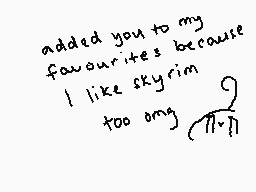 added you to my
favourites because
I like skyrim
too omg